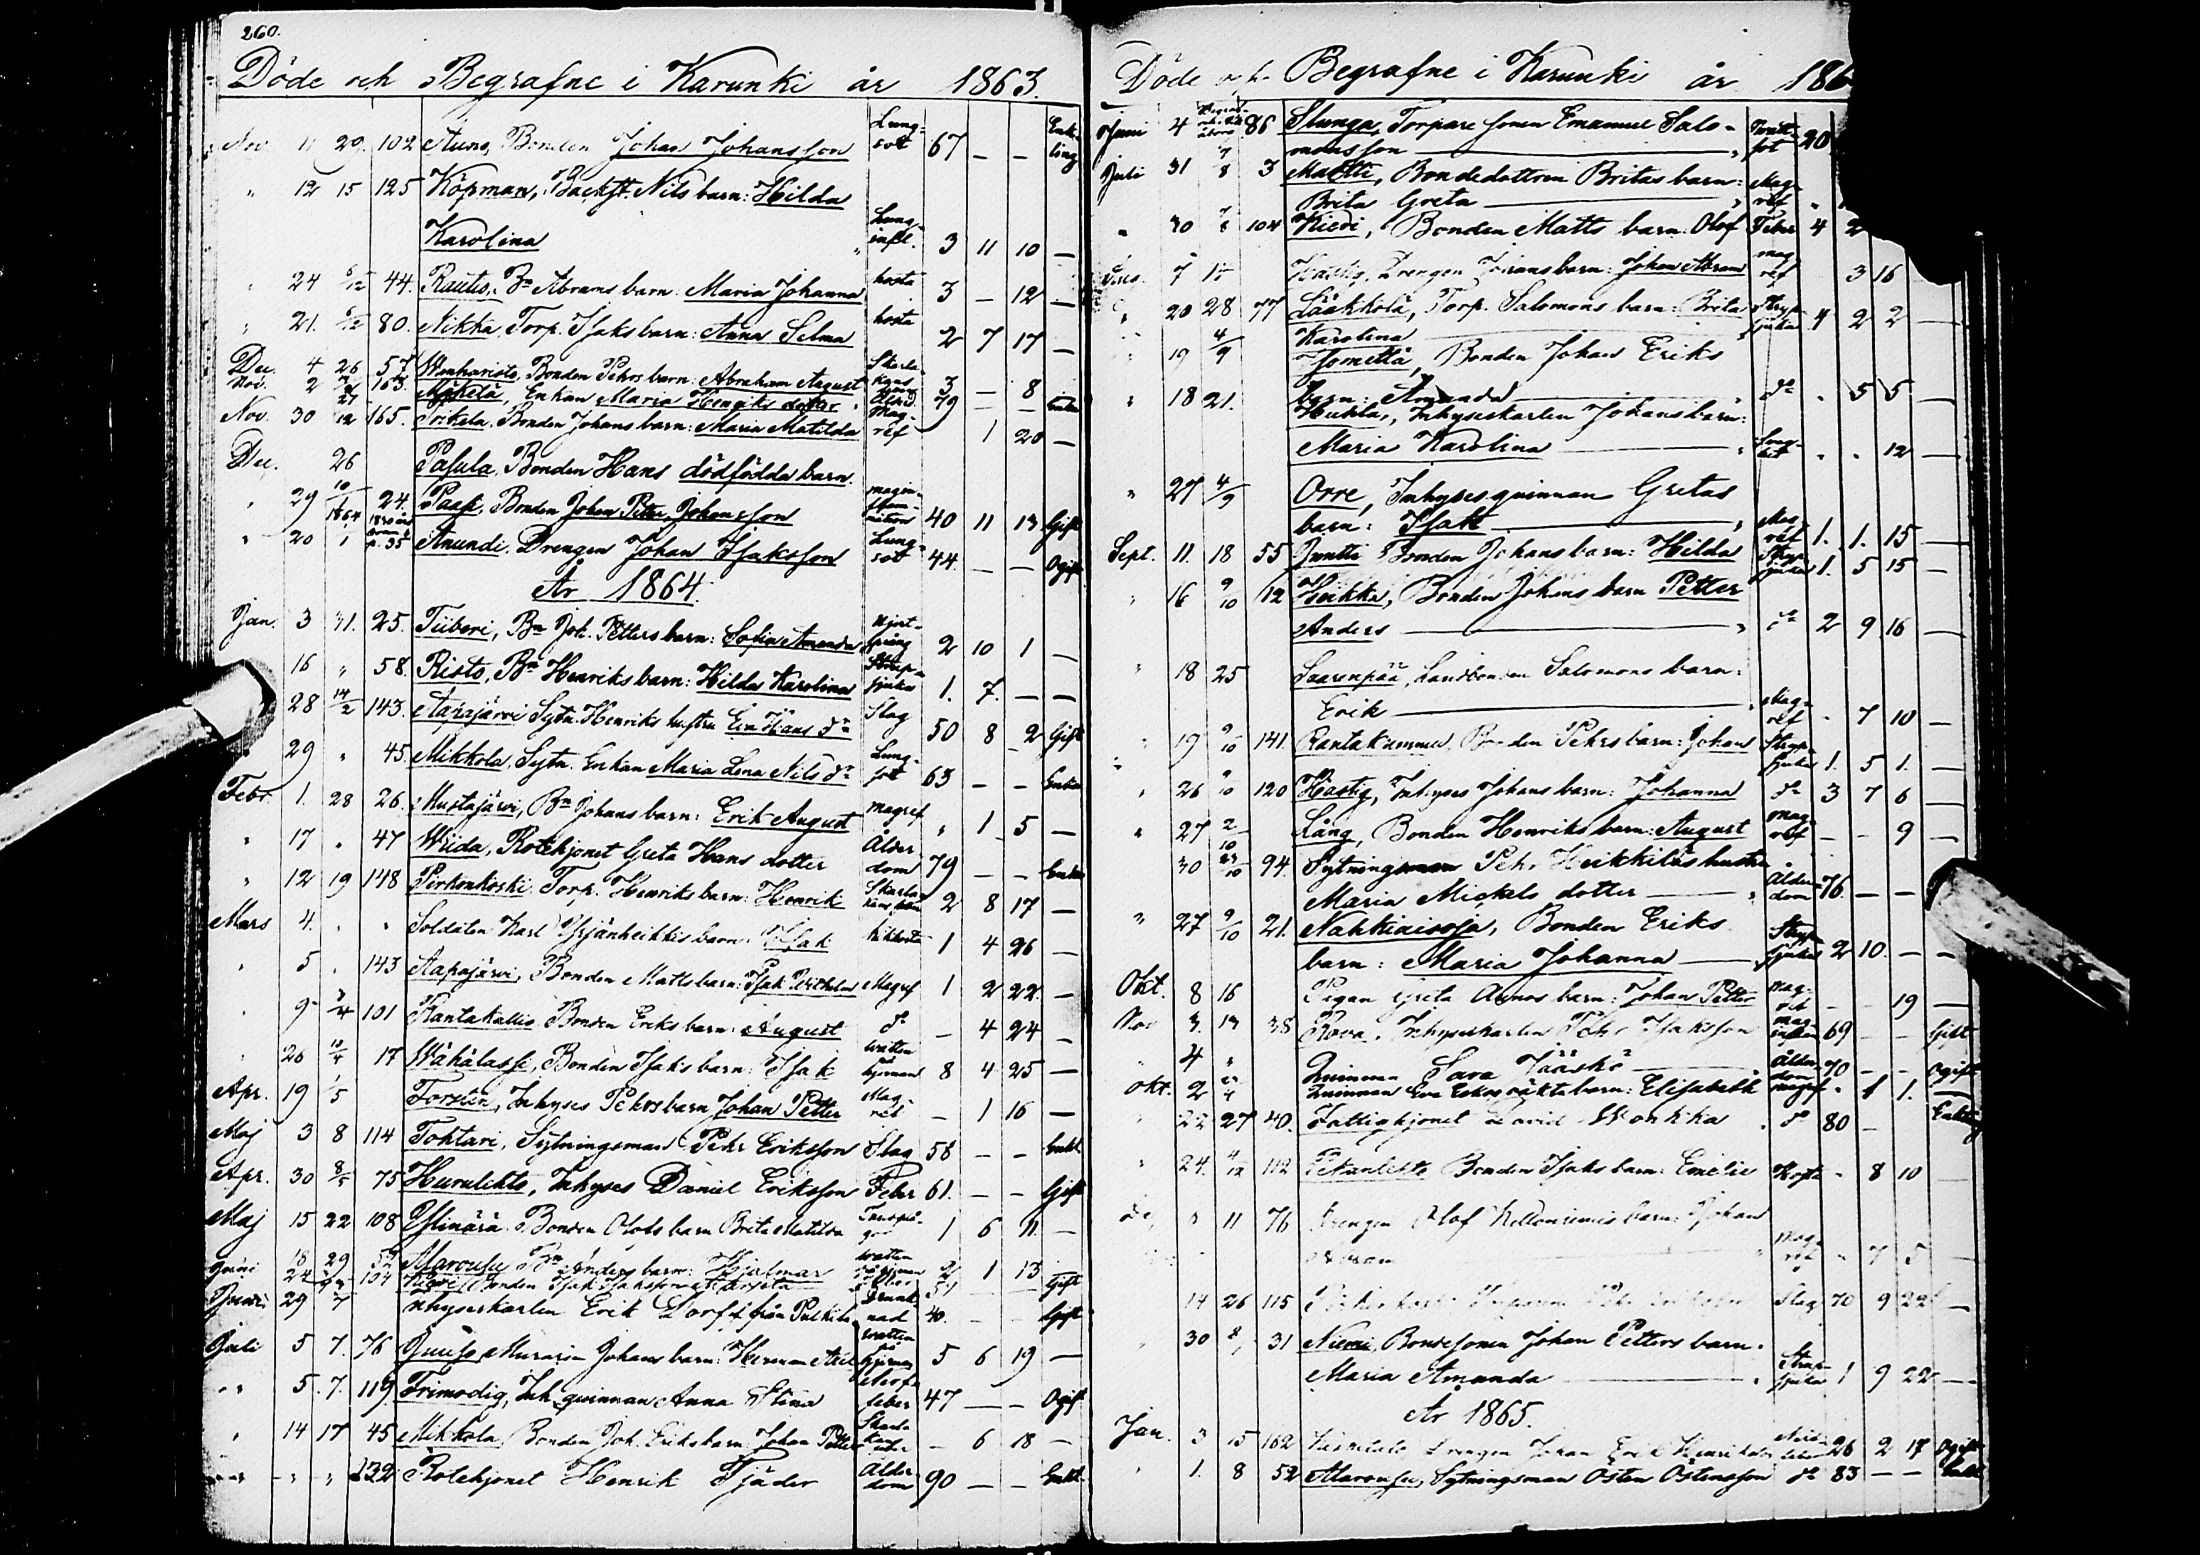 260.
Döde och Begrafne i Karunki år 1863.
Nov 11 29. 102 Auno, Bonden Johan Johansson Lungsot 67 – – Enkling
" 12 15 125 Köpman, Backst. Nils barn: Hilda
Karolina " Lunginfl. 3 11 10 –
" 24 6/12 44. Rautio, Bn Abrams barn: Maria Johanna hosta 3 – 12 –
" 21. 6/12 80. Nikka, Torp. Isaks barn: Anna Selma hosta 2 7 17 –
Dec. 4 26 57 Bonden Pehrs barn: Abraham August 3 – 8
Nov. 2 163. Mäkelä, Enkan Maria Henriks dotter 79 – – Enka
Nov. 30 27/12 165. Bonden Johans barn: Maria Matilda Magref – 1 20 –
Dec. 26 Pasula, Bonden Hans dödfödda barn.
" 29 10/1 1864 24. Paak, Bonden Johan Petter Johansson 40 11 13 Gift
" 20 1 p. 35 Amundi, Drengen Johan Isaksson Lungsot 44. – – Ogift
År 1864.
Jan. 3 31. 25. Tiiberi, Bn Joh. Petters barn: Sofia Amanda 2 10 1 –
16 " 58. Risto, Bn Henriks barn: Hilda Karolina Strypsjuka 1. 7. – –
28 14/2 143. Aapajärvi Sytn. Henriks hustru Eva Hans dr Slag 50 8 2 Gift
29 " 45. Mikkola, Sytn. Enkan Maria Lena Nils dr Lungsot 63 – – Enka
Febr. 1. 28 26. Mustajärvi, Bn Johans barn: Erik August magref " 1 5 –
" 17 " 47 Wiida, Rotehjonet Greta Hans dotter Ålderdom 79 – – Enka
" 12 19 148 Pirkonkoski Torp. Henriks barn: Henrik 2 8 17 –
Mars 4. " " Soldaten Karl Yrjänheikkis barn: Isak Kikhosta 1 4 26 –
" 5 " 143 Aapajärvi, Bonden Matts barn: Isak Wilhelm Magref 1 2 22. –
" 9 3/4 101 Rantakallio Bonden Eriks barn: August do – 4 24 –
" 26 10/4 17 Wähälassi, Bonden Isaks barn: Isak watten på hjernan 8 4 25 –
Apr. 19 1/5 Forsten, Inhyses Pehrs barn Johan Petter Magref – 1 16 –
Maj 3 8 114 Tohtari, Sytningsman Pehr Eriksson Slag 58 – – Enkl
Apr. 30 8/5 75 Hurulehto, Inhyses Daniel Eriksson Feber 61. – – Gift
Maj 15 22 108 Ylinärä Bonden Olofs barn Brita Matilda 1 6 11. –
Juni 18 29 52 Marousu Bn Anders barn: Hjalmar watten på hjernan 2 1 13
24 104 Bonden Isak Isaksson Gift
Juni 29 7 Inhyseskarlen Erik Dorff från Pulkila Drunknad 40. – – Gift
Juli 5 7. 76 Juuso, Muraren Johans barn: Herman watten på hjernan 5 6 19 –
" 5. 7. 119 Frimodig, Inh. quinnan Anna Stina Nervfeber 47 – – Ogift
" 14 17 45 Mikkola, Bonden Joh. Eriks barn Johan Petter – 6 18 –
" " 132 Rotehjonet Henrik Fjäder Ålderdom 90 – – Enkl.
Döde och Begrafne i Karunki år 186
Juni 4 86 Slunga, Torpare sonen Emanuel Salomonsson 20
Juli 31 7/8 3 Matti, Bondedottren Britas barn:
Brita Greta – " Magref "
" 30 7/8 104 Kieri, Bonden Matts barn: Olof Feber 4 2
7 Hästig, Drengen Johans barn: Johan Abram magref 3 16
" 20 28 77 Lääkkölä, Torp. Salomons barn: Brita
Karolina Strypsjuka 4 2 2 –
" 19 4/9 Jomettä, Bonden Johan Eriks
barn: Amanda do " 5 5 –
" 18 21. Inhyseskarlen Johans barn:
Maria Karolina – " Lungsot " " 12 –
" 27 4/9 Orre, Inhyses quinnan Gretas
barn: Isak – " Magref 1. 1. 15 –
Sept. 11. 18 55 Juntti Bonden Johans barn: Hilda Strypsjuka 1. 5 15 –
" 16 9/10 12 Heikka, Bonden Johans barn Petter
Anders – " do 2 9 16 –
" 18 25 Saarenpää, Landbonden Salomons barn:
Erik – Magref " 7 10 –
" 19 9/10 141. Bonden Pehrs barn: Johan Strypsjuka 1. 5 1. –
" 26 9/10 120 Hästig, Inhyses Johans barn: Johanna do 3 7 6 –
" 27 2/10 Lång, Bonden Henriks barn: August magref – – 9 –
30 23/10 94. Sytningsman Pehr Heikkiläs hustru
Maria Mickels dotter – " Ålderdom 76. – –
" 27 9/10 21. Nahkiaisoja, Bonden Eriks
barn: Maria Johanna – Strypsjuka 2 10. – –
Okt. 8 16 Pigan Greta Aunos barn: Johan Petter Magref – – 19 –
Nov 3. 13 38 Rova, Inhyseskarlen Pehr Isaksson 69 – – Gift
" 4 " Quinnan Sara Jääskö Ålderdom 70 – – Ogift
Okt. 2 Quinnan Eva oäkta barn: Elisabeth magref " 1 1. –
22 27 40. Fattighjonet David Wonkka do 80 – Enkling
" 24. 4/12 112 Bonden Isaks barn: Emelie Hosta – 8 10 –
11 76 Drengen Olof barn: Johan
Magref " 7 5 –
14 26 115 Slag 70 9 22 –
30 8/1 31 Niemi, Bondesonen Johan Petters barn.
Maria Amanda – " Strypsjuka 1 9 22 –
År 1865.
Jan. 3 15 162 Drengen Johan Erik 26 2 17 Ogift
" 1. 8 52 Marousu, Sytningsman Östen Östensson do 83 – – Enkl.